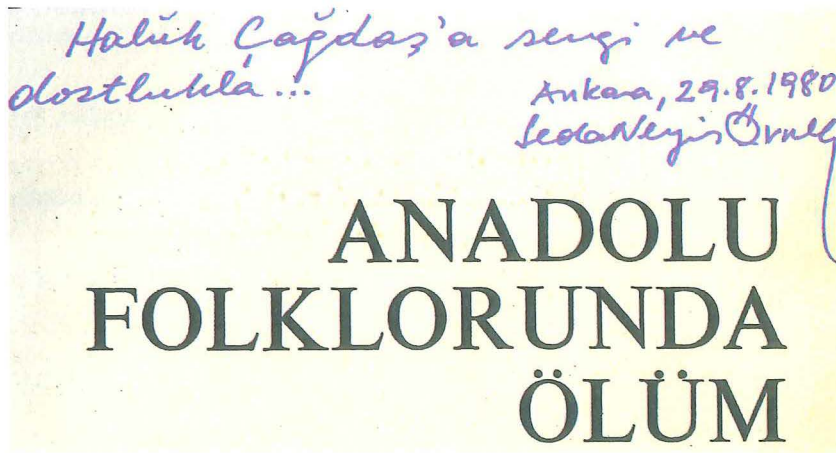 Halûk Çağdaş'a sevgi ve
dostlukla...
Ankara, 29.8.1980
Sedat Veyis Örnek
ANADOLU
FOLKLORUNDA
ÖLÜM